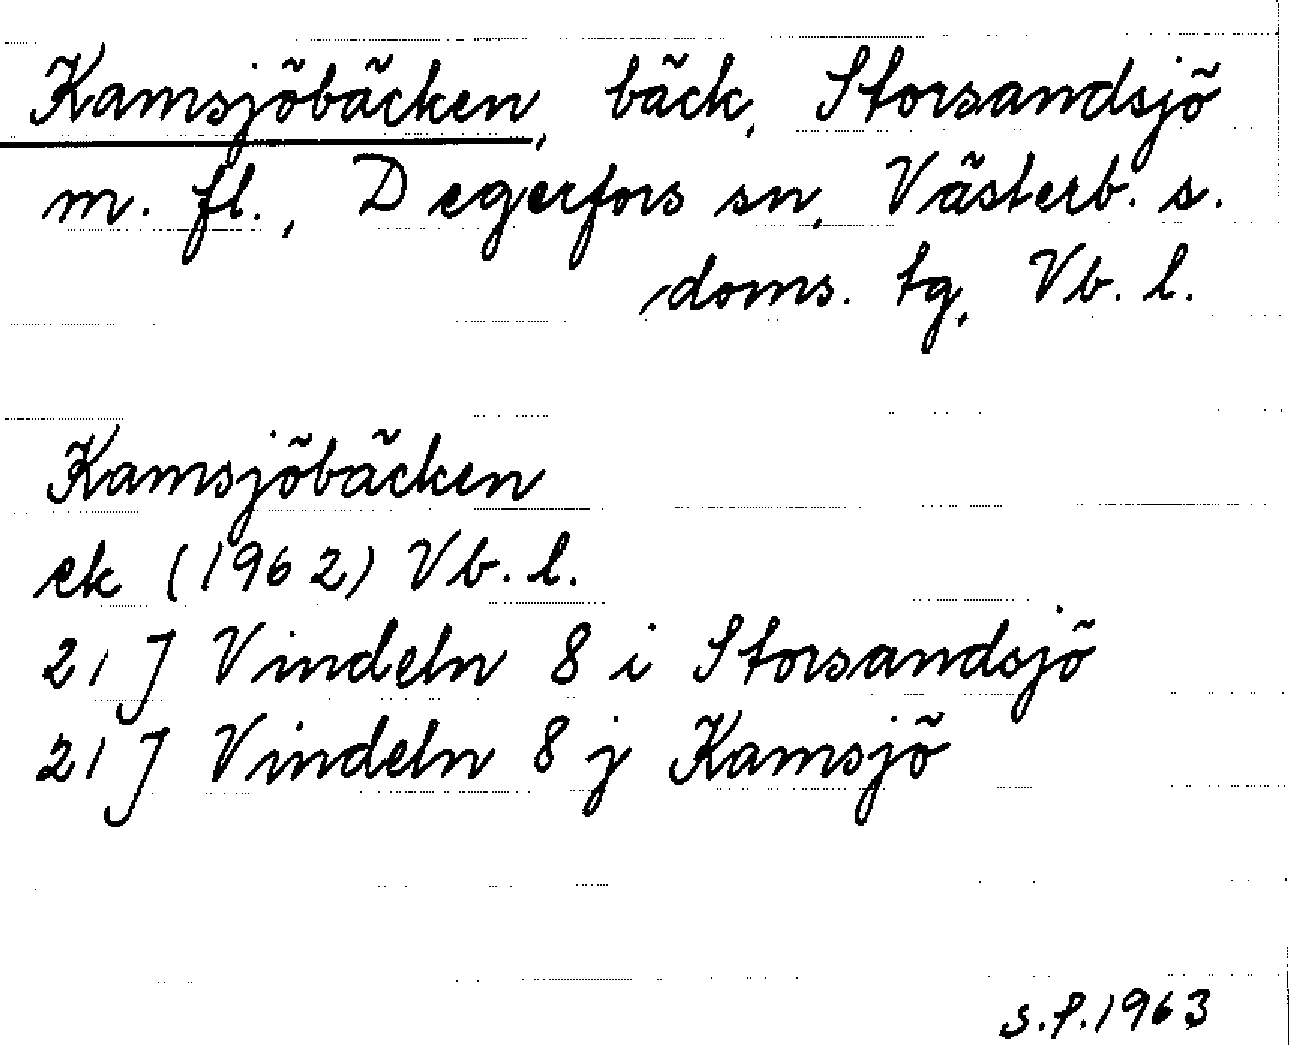 Kamsjöbäcken, bäck, Storsandsjö
m. fl., Degerfors sn, Västerb. s.
doms. tg, Vb. l.
Kamsjöbäcken
ek (1962) Vb. l.
21 J Vindeln 8 i Storsandsjö
21 J Vindeln 8 j Kamsjö
s.f. 1963